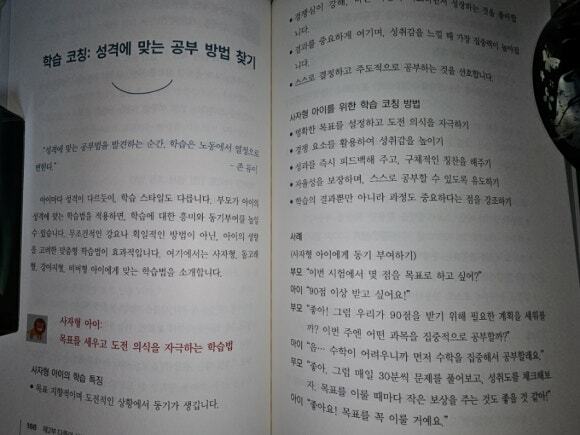 학습 코칭: 성격에 맞는 공부 방법 찾기
“성격에 맞는 공부법을 발견하는 순간, 학습은 노동에서 열정으로
변한다.”
- 존 듀이
아이마다 성격이 다르듯이, 학습 스타일도 다릅니다. 부모가 아이의
성격에 맞는 학습법을 적용하면, 학습에 대한 흥미와 동기부여를 높일
수 있습니다. 무조건적인 강요나 획일적인 방법이 아닌, 아이의 성향
을 고려한 맞춤형 학습법이 효과적입니다. 여기에서는 사자형, 돌고래
형, 강아지형, 비버형 아이에게 맞는 학습법을 소개합니다.
사자형 아이:
목표를 세우고 도전 의식을 자극하는 학습법
사자형 아이의 학습 특징
• 목표 지향적이며 도전적인 상황에서 동기가 생깁니다.
168 제2부
• 경쟁심이 강해,
성장하는 것을 좋아합
니다.
• 결과를 중요하게 여기며, 성취감을 느낄 때 가장 집중력이 높아집
니다.
• 스스로 결정하고 주도적으로 공부하는 것을 선호합니다.
사자형 아이를 위한 학습 코칭 방법
• 명확한 목표를 설정하고 도전 의식을 자극하기
• 경쟁 요소를 활용하여 성취감을 높이기
• 성과를 즉시 피드백해 주고, 구체적인 칭찬을 해주기
• 자율성을 보장하며, 스스로 공부할 수 있도록 유도하기
• 학습의 결과뿐만 아니라 과정도 중요하다는 점을 강조하기
사례
(사자형 아이에게 동기 부여하기)
부모 “이번 시험에서 몇 점을 목표로 하고 싶어?”
아이 “90점 이상 받고 싶어요!”
부모 “좋아! 그럼 우리가 90점을 받기 위해 필요한 계획을 세워볼
까? 이번 주엔 어떤 과목을 집중적으로 공부할까?”
아이 “음… 수학이 어려우니까 먼저 수학을 집중해서 공부할래요.”
부모 “좋아, 그럼 매일 30분씩 문제를 풀어보고, 성취도를 체크해보
자. 목표를 이룰 때마다 작은 보상을 주는 것도 좋을 것 같아!”
아이 “좋아요! 목표를 꼭 이룰 거예요.”